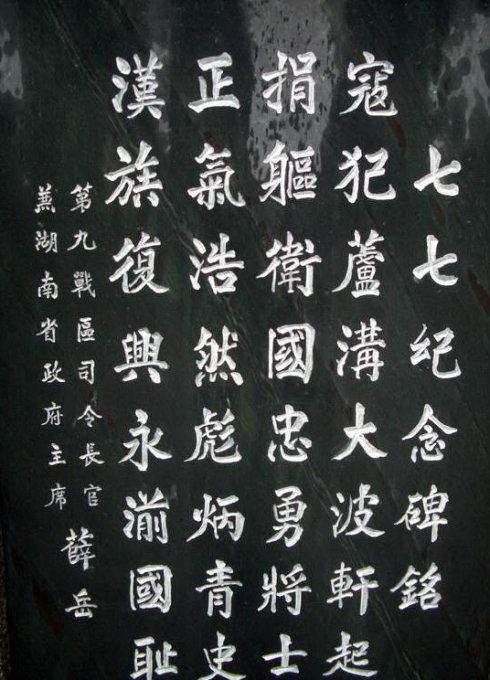 七七紀念碑銘
寇犯蘆溝大波軒起
捐軀衛國忠勇將士
正氣浩然彪炳青史
漢族復興永湔國耻
第九戰區司令長官
兼湖南省政府主席
薛岳